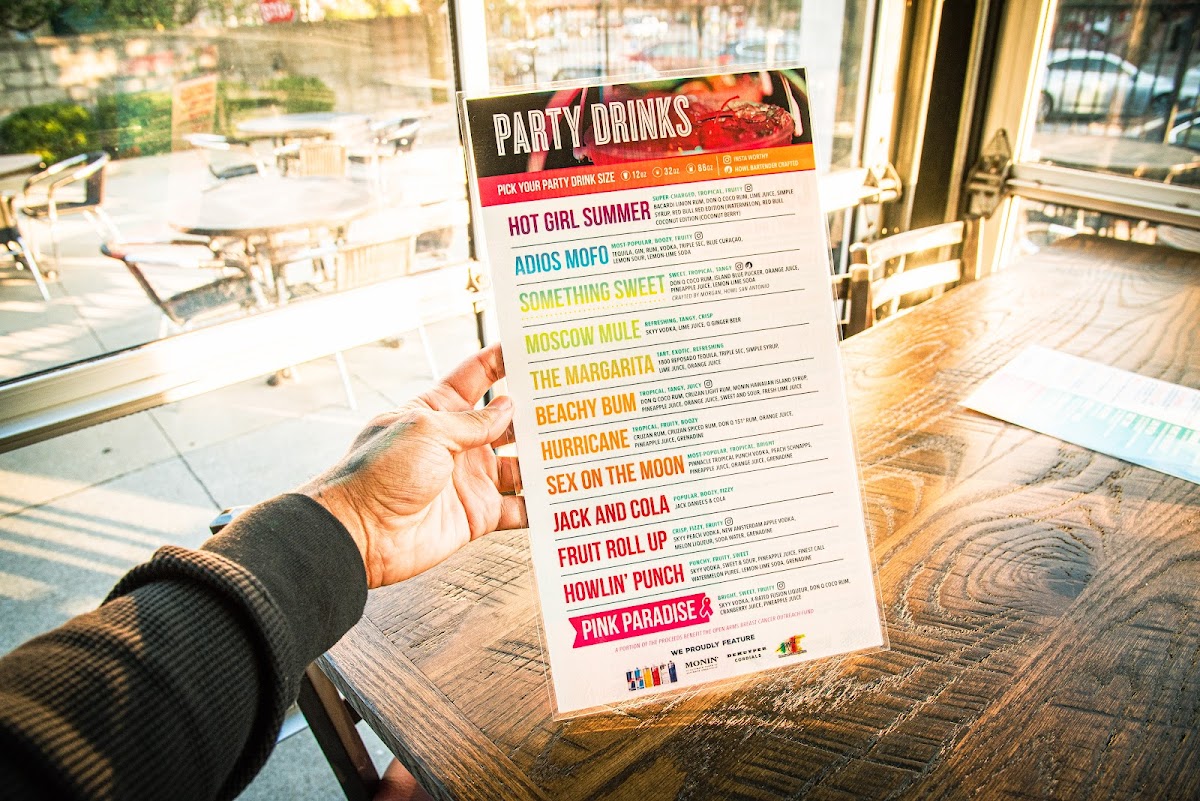 STOP
PARTY DRINKS
PICK YOUR PARTY DRINK SIZE 12OZ 32OZ 66OZ
INSTA WORTHY
HOWL BARTENDER CRAFTED
HOT GIRL SUMMER
SUPER CHARGED, TROPICAL, FRUITY
BACARDI LIMON RUM, DON Q COCO RUM, LIME JUICE, SIMPLE
SYRUP, RED BULL RED EDITION (WATERMELON), RED BULL
COCONUT EDITION (COCONUT BERRY)
ADIOS MOFO
MOST-POPULAR, BOOZY, FRUITY
TEQUILA, GIN, RUM, VODKA, TRIPLE SEC, BLUE CURAÇAO,
LEMON SOUR, LEMON-LIME SODA
SOMETHING SWEET
SWEET, TROPICAL, TANGY
DON Q COCO RUM, ISLAND BLUE PUCKER, ORANGE JUICE,
PINEAPPLE JUICE, LEMON-LIME SODA
CRAFTED BY MORGAN, HOWL SAN ANTONIO
MOSCOW MULE
REFRESHING, TANGY, CRISP
SKYY VODKA, LIME JUICE, Q GINGER BEER
THE MARGARITA
TART, EXOTIC, REFRESHING
1800 REPOSADO TEQUILA, TRIPLE SEC, SIMPLE SYRUP,
LIME JUICE, ORANGE JUICE
BEACHY BUM
TROPICAL, TANGY, JUICY
DON Q COCO RUM, CRUZAN LIGHT RUM, MONIN HAWAIIAN ISLAND SYRUP,
PINEAPPLE JUICE, ORANGE JUICE, SWEET AND SOUR, FRESH LIME JUICE
HURRICANE
TROPICAL, FRUITY, BOOZY
CRUZAN RUM, CRUZAN SPICED RUM, DON Q 151° RUM, ORANGE JUICE,
PINEAPPLE JUICE, GRENADINE
SEX ON THE MOON
MOST-POPULAR, TROPICAL, BRIGHT
PINNACLE TROPICAL PUNCH VODKA, PEACH SCHNAPPS,
PINEAPPLE JUICE, ORANGE JUICE, GRENADINE
JACK AND COLA
POPULAR, BOOZY, FIZZY
JACK DANIELS & COLA
FRUIT ROLL UP
CRISP, FIZZY, FRUITY
SKYY PEACH VODKA, NEW AMSTERDAM APPLE VODKA,
MELON LIQUEUR, SODA WATER, GRENADINE
HOWLIN' PUNCH
PUNCHY, FRUITY, SWEET
SKYY VODKA, SWEET & SOUR, PINEAPPLE JUICE, FINEST CALL
WATERMELON PUREE, LEMON-LIME SODA, GRENADINE
PINK PARADISE
BRIGHT, SWEET, FRUITY
SKYY VODKA, X-RATED FUSION LIQUEUR, DON Q COCO RUM,
CRANBERRY JUICE, PINEAPPLE JUICE
A PORTION OF THE PROCEEDS BENEFIT THE OPEN ARMS BREAST CANCER OUTREACH FUND
WE PROUDLY FEATURE
MONIN
DEKUYPER
CORDIALS